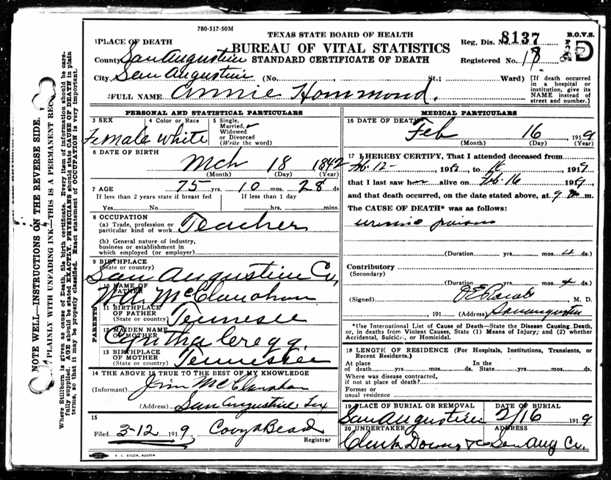 780-517-50M
TEXAS STATE BOARD OF HEALTH
BUREAU OF VITAL STATISTICS
STANDARD CERTIFICATE OF DEATH
Reg. Dis. No. 8137
B.O.V.S.
Registered No. 18
D
1 PLACE OF DEATH
County San Augustine
City San Augustine (No. St.; Ward)
[If death occurred in a hospital or institution, give its NAME instead of street and number.]
2 FULL NAME Annie Hammond.
PERSONAL AND STATISTICAL PARTICULARS
3 SEX Female
4 Color or Race White
5 Single, Married, Widowed or Divorced (Write the word)
6 DATE OF BIRTH
Mch 18 1842
(Month) (Day) (Year)
7 AGE 75 yrs. 10 mos. 28 ds.
If less than 2 years state if breast fed
If less than 1 day
Yes No hrs. mins.
8 OCCUPATION
(a) Trade, profession or particular kind of work Teacher
(b) General nature of industry, business or establishment in which employed (or employer)
9 BIRTHPLACE
(State or country) San Augustine Co,
PARENTS
10 NAME OF FATHER Wd. McClanahan
11 BIRTHPLACE OF FATHER
(State or country) Tennessee
12 MAIDEN NAME OF MOTHER Gregg
13 BIRTHPLACE OF MOTHER
(State or country) Tennessee
14 THE ABOVE IS TRUE TO THE BEST OF MY KNOWLEDGE
(Informant) Jim McClanahan
(Address) San Augustine Tex
15
Filed 3-12 1919, Registrar
MEDICAL PARTICULARS
16 DATE OF DEATH
Feb 16 1919
(Month) (Day) (Year)
17 I HEREBY CERTIFY, That I attended deceased from
Feb 12 191 to 1919
that I last saw her alive on Feb 16 1919
and that death occurred, on the date stated above, at 9 m.
The CAUSE OF DEATH* was as follows:
uremic poison
(Duration) ds.
Contributory
(Secondary)
(Duration) ds.
(Signed) M. D.
191 (Address) San Augustine
*Use International List of Cause of Death—State the Disease Causing Death, or, in deaths from Violent Causes, State (1) Means of Injury; and (2) whether Accidental, Suicidal, or Homicidal.
18 LENGTH OF RESIDENCE (For Hospitals, Institutions, Transients, or Recent Residents.)
At place of death yrs. mos. ds. In the State yrs. mos. ds.
Where was disease contracted, if not at place of death?
Former or usual residence
19 PLACE OF BURIAL OR REMOVAL San Augustine
DATE OF BURIAL 2/16 1919
20 UNDERTAKER Clark Downs
ADDRESS San Aug Co.
NOTE WELL—INSTRUCTIONS ON THE REVERSE SIDE.
PLAINLY WITH UNFADING INK—THIS IS A PERMANENT